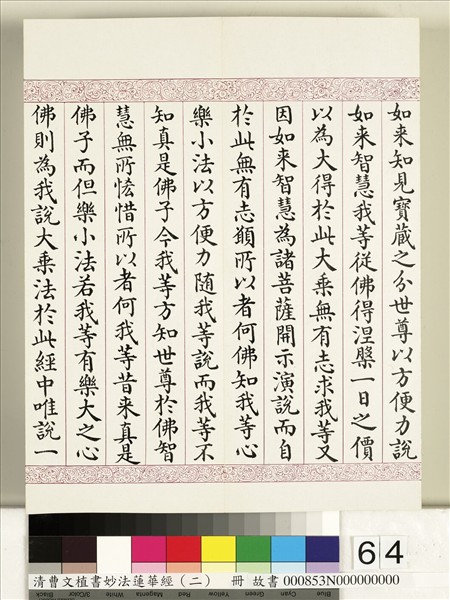 如来知見寶蔵之分世尊以方便力說
如来智慧我等從佛得涅槃一日之價
以為大得於此大乘無有志求我等又
因如来智慧為諸菩薩開示演說而自
於此無有志願所以者何佛知我等心
樂小法以方便力隨我等說而我等不
知真是佛子今我等方知世尊於佛智
慧無所悋惜所以者何我等昔来真是
佛子而但樂小法若我等有樂大之心
佛則為我說大乘法於此經中唯說一
64
清曹文植書妙法蓮華經（二） 冊 故書 000853N000000000
Black 3/Color White Magenta Red Yellow Green Cyan Blue